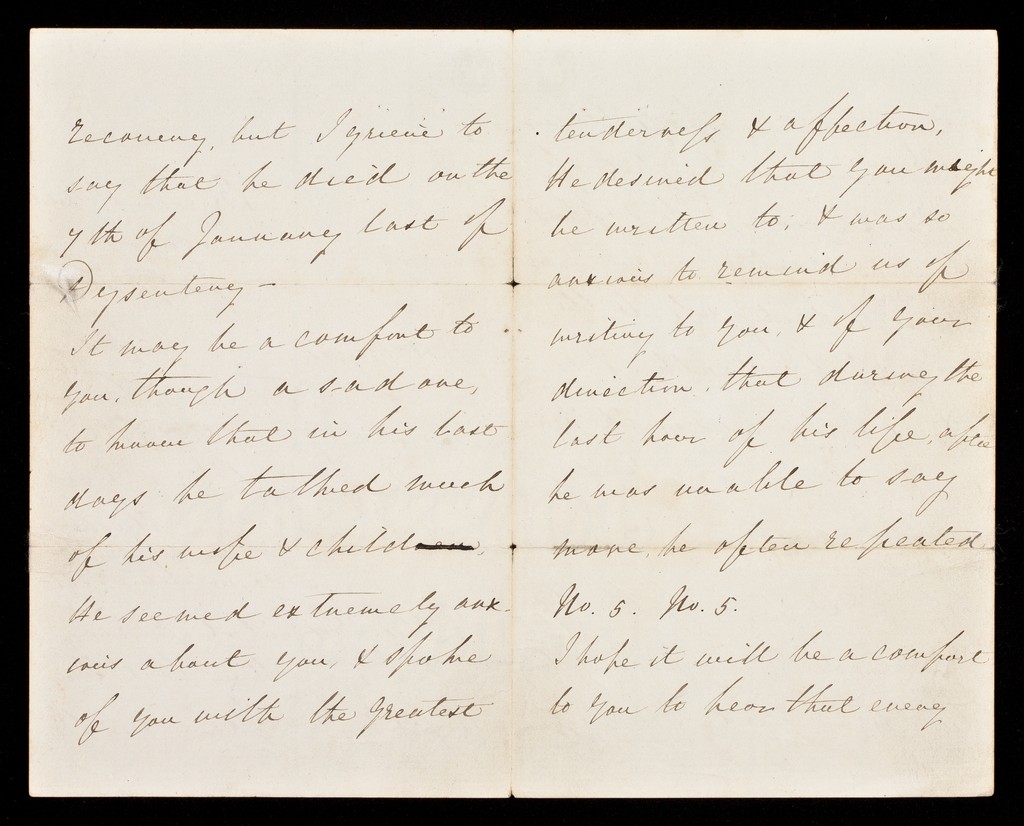 recovery, but I grieve to
say that he died on the
7th of January last of
Dysentery –
It may be a comfort to
you, though a sad one,
to know that in his last
days he talked much
of his wife & child<s>ren</s>.
He seemed extremely anx-
ious about you, & spoke
of you with the greatest
tenderness & affection,
He desired that you might
be written to; & was so
anxious to remind us of
writing to you, & of your
direction, that during the
last hour of his life, after
he was unable to say
more, he often repeated
No. 5. No. 5.
I hope it will be a comfort
to you to hear that every